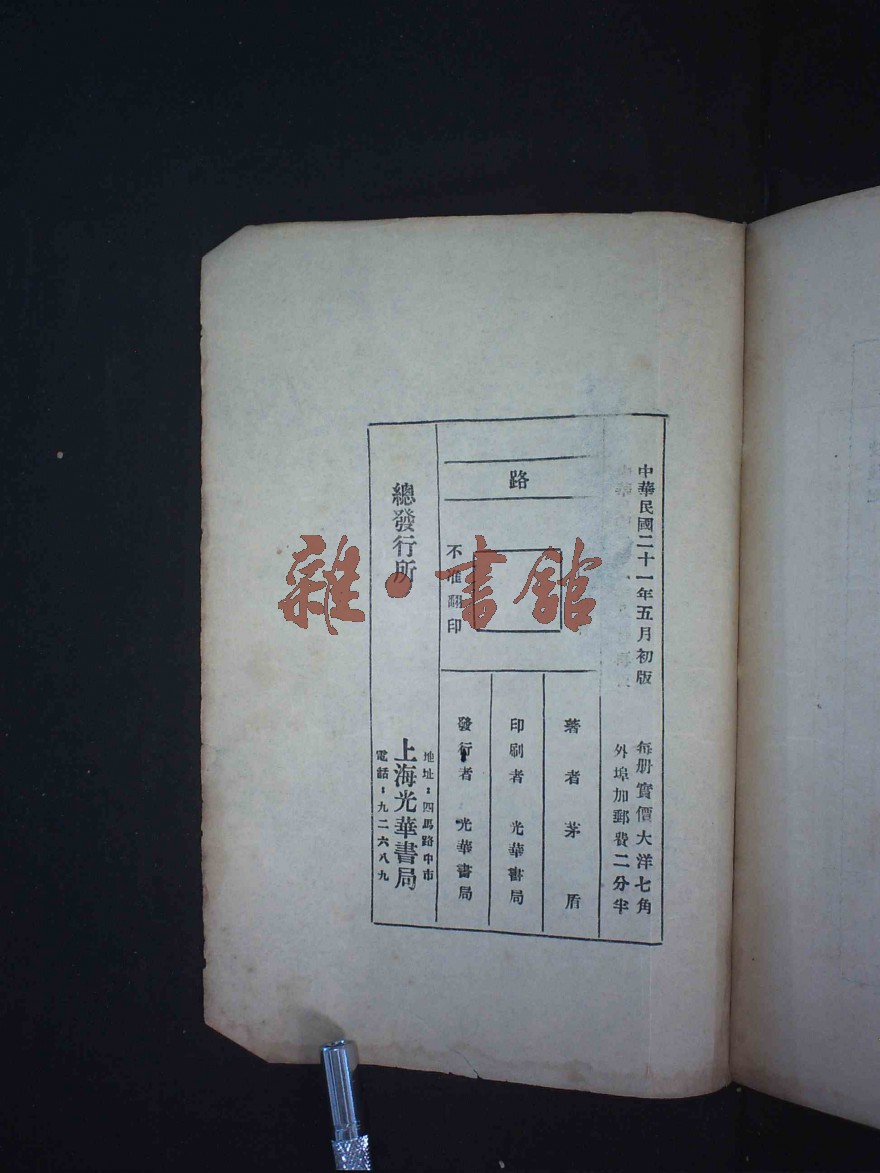 中華民國二十一年五月初版
每册實價大洋七角
外埠加郵費二分半
路
不准翻印
著者 茅盾
印刷者 光華書局
發行者 光華書局
總發行所
地址：四馬路中市
上海光華書局
電話：九二六八九
雜·書館